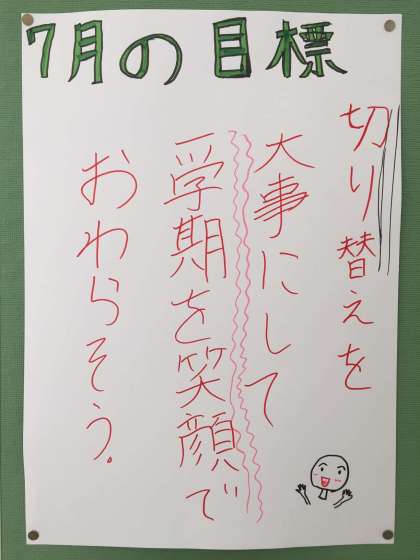 7月の目標
切り替えを
大事にして
一学期を笑顔で
おわらそう。